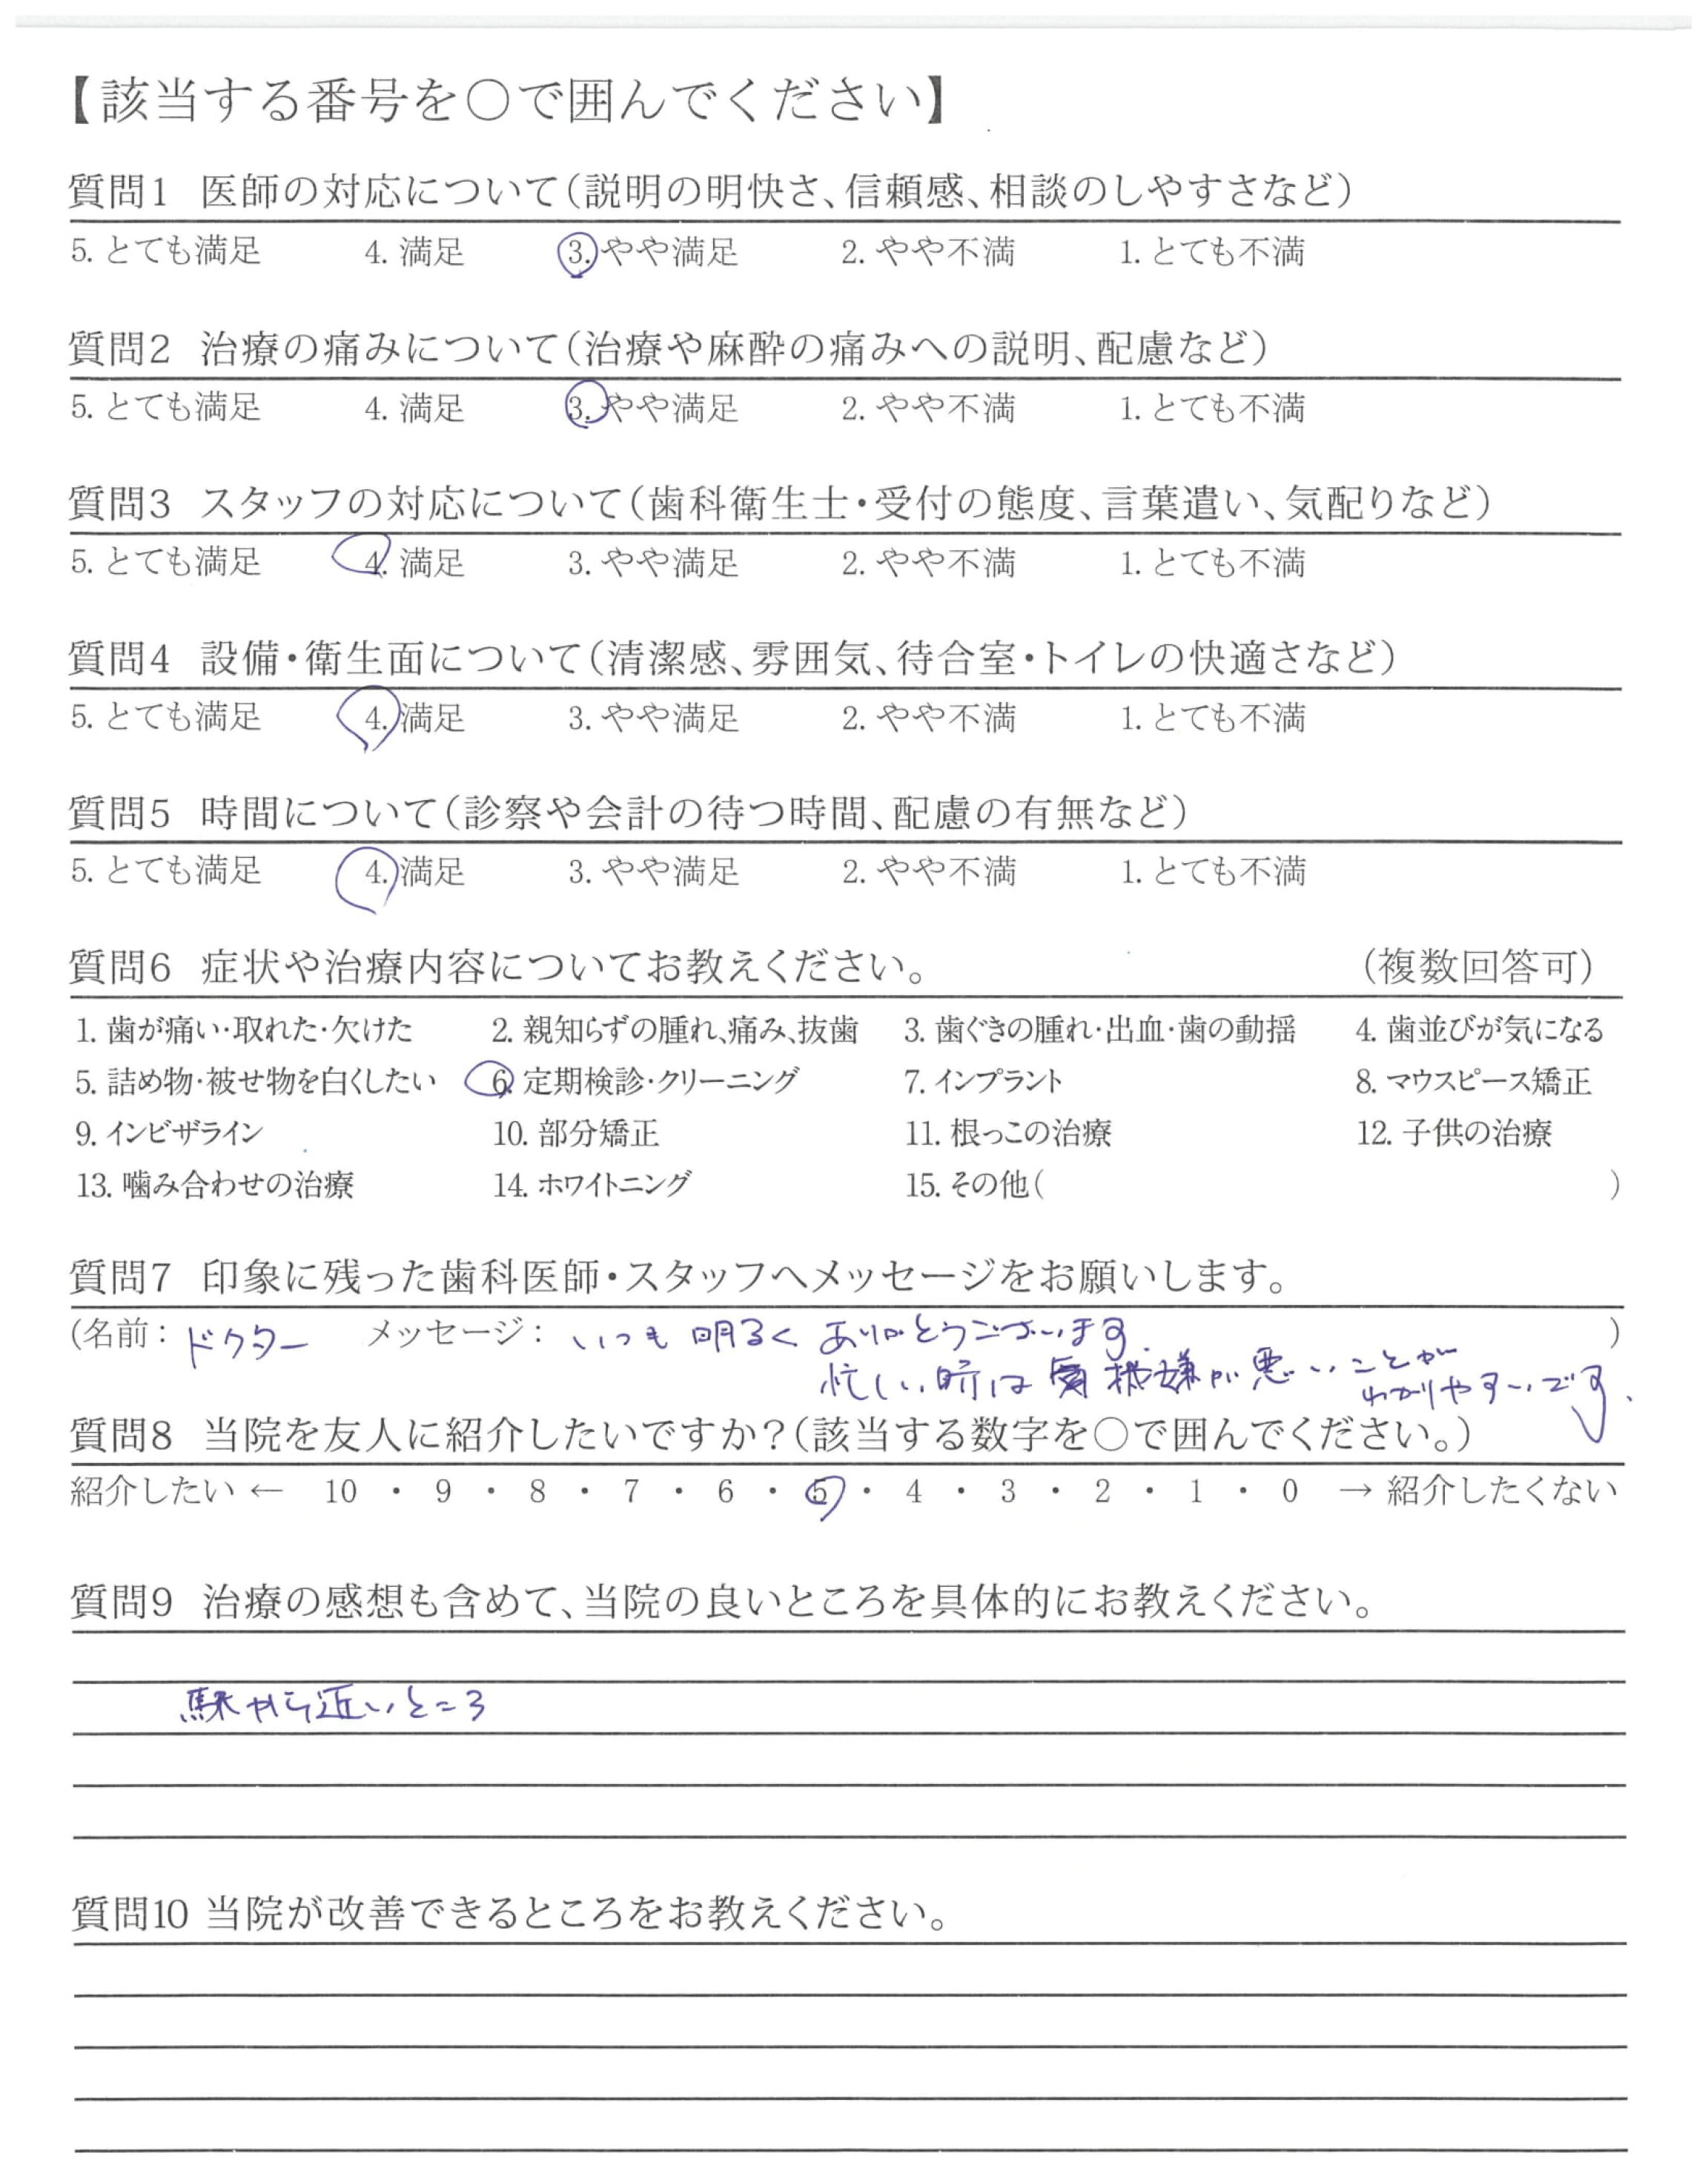 【該当する番号を○で囲んでください】
質問1 医師の対応について(説明の明快さ、信頼感、相談のしやすさなど)
5. とても満足 4. 満足 3. やや満足 2. やや不満 1. とても不満
質問2 治療の痛みについて(治療や麻酔の痛みへの説明、配慮など)
5. とても満足 4. 満足 3. やや満足 2. やや不満 1. とても不満
質問3 スタッフの対応について(歯科衛生士・受付の態度、言葉遣い、気配りなど)
5. とても満足 4. 満足 3. やや満足 2. やや不満 1. とても不満
質問4 設備・衛生面について(清潔感、雰囲気、待合室・トイレの快適さなど)
5. とても満足 4. 満足 3. やや満足 2. やや不満 1. とても不満
質問5 時間について(診察や会計の待つ時間、配慮の有無など)
5. とても満足 4. 満足 3. やや満足 2. やや不満 1. とても不満
質問6 症状や治療内容についてお教えください。 (複数回答可)
1. 歯が痛い・取れた・欠けた 2. 親知らずの腫れ、痛み、抜歯 3. 歯ぐきの腫れ・出血・歯の動揺 4. 歯並びが気になる
5. 詰め物・被せ物を白くしたい 6. 定期検診・クリーニング 7. インプラント 8. マウスピース矯正
9. インビザライン 10. 部分矯正 11. 根っこの治療 12. 子供の治療
13. 噛み合わせの治療 14. ホワイトニング 15. その他( )
質問7 印象に残った歯科医師・スタッフへメッセージをお願いします。
(名前: ドクター メッセージ: いつも 明るく ありがとうございます. )
忙しい時は 機嫌が悪いことが
わかりやすいです.
質問8 当院を友人に紹介したいですか?(該当する数字を○で囲んでください。)
紹介したい ← 10 ・ 9 ・ 8 ・ 7 ・ 6 ・ 5 ・ 4 ・ 3 ・ 2 ・ 1 ・ 0 → 紹介したくない
質問9 治療の感想も含めて、当院の良いところを具体的にお教えください。
駅から近いところ
質問10 当院が改善できるところをお教えください。